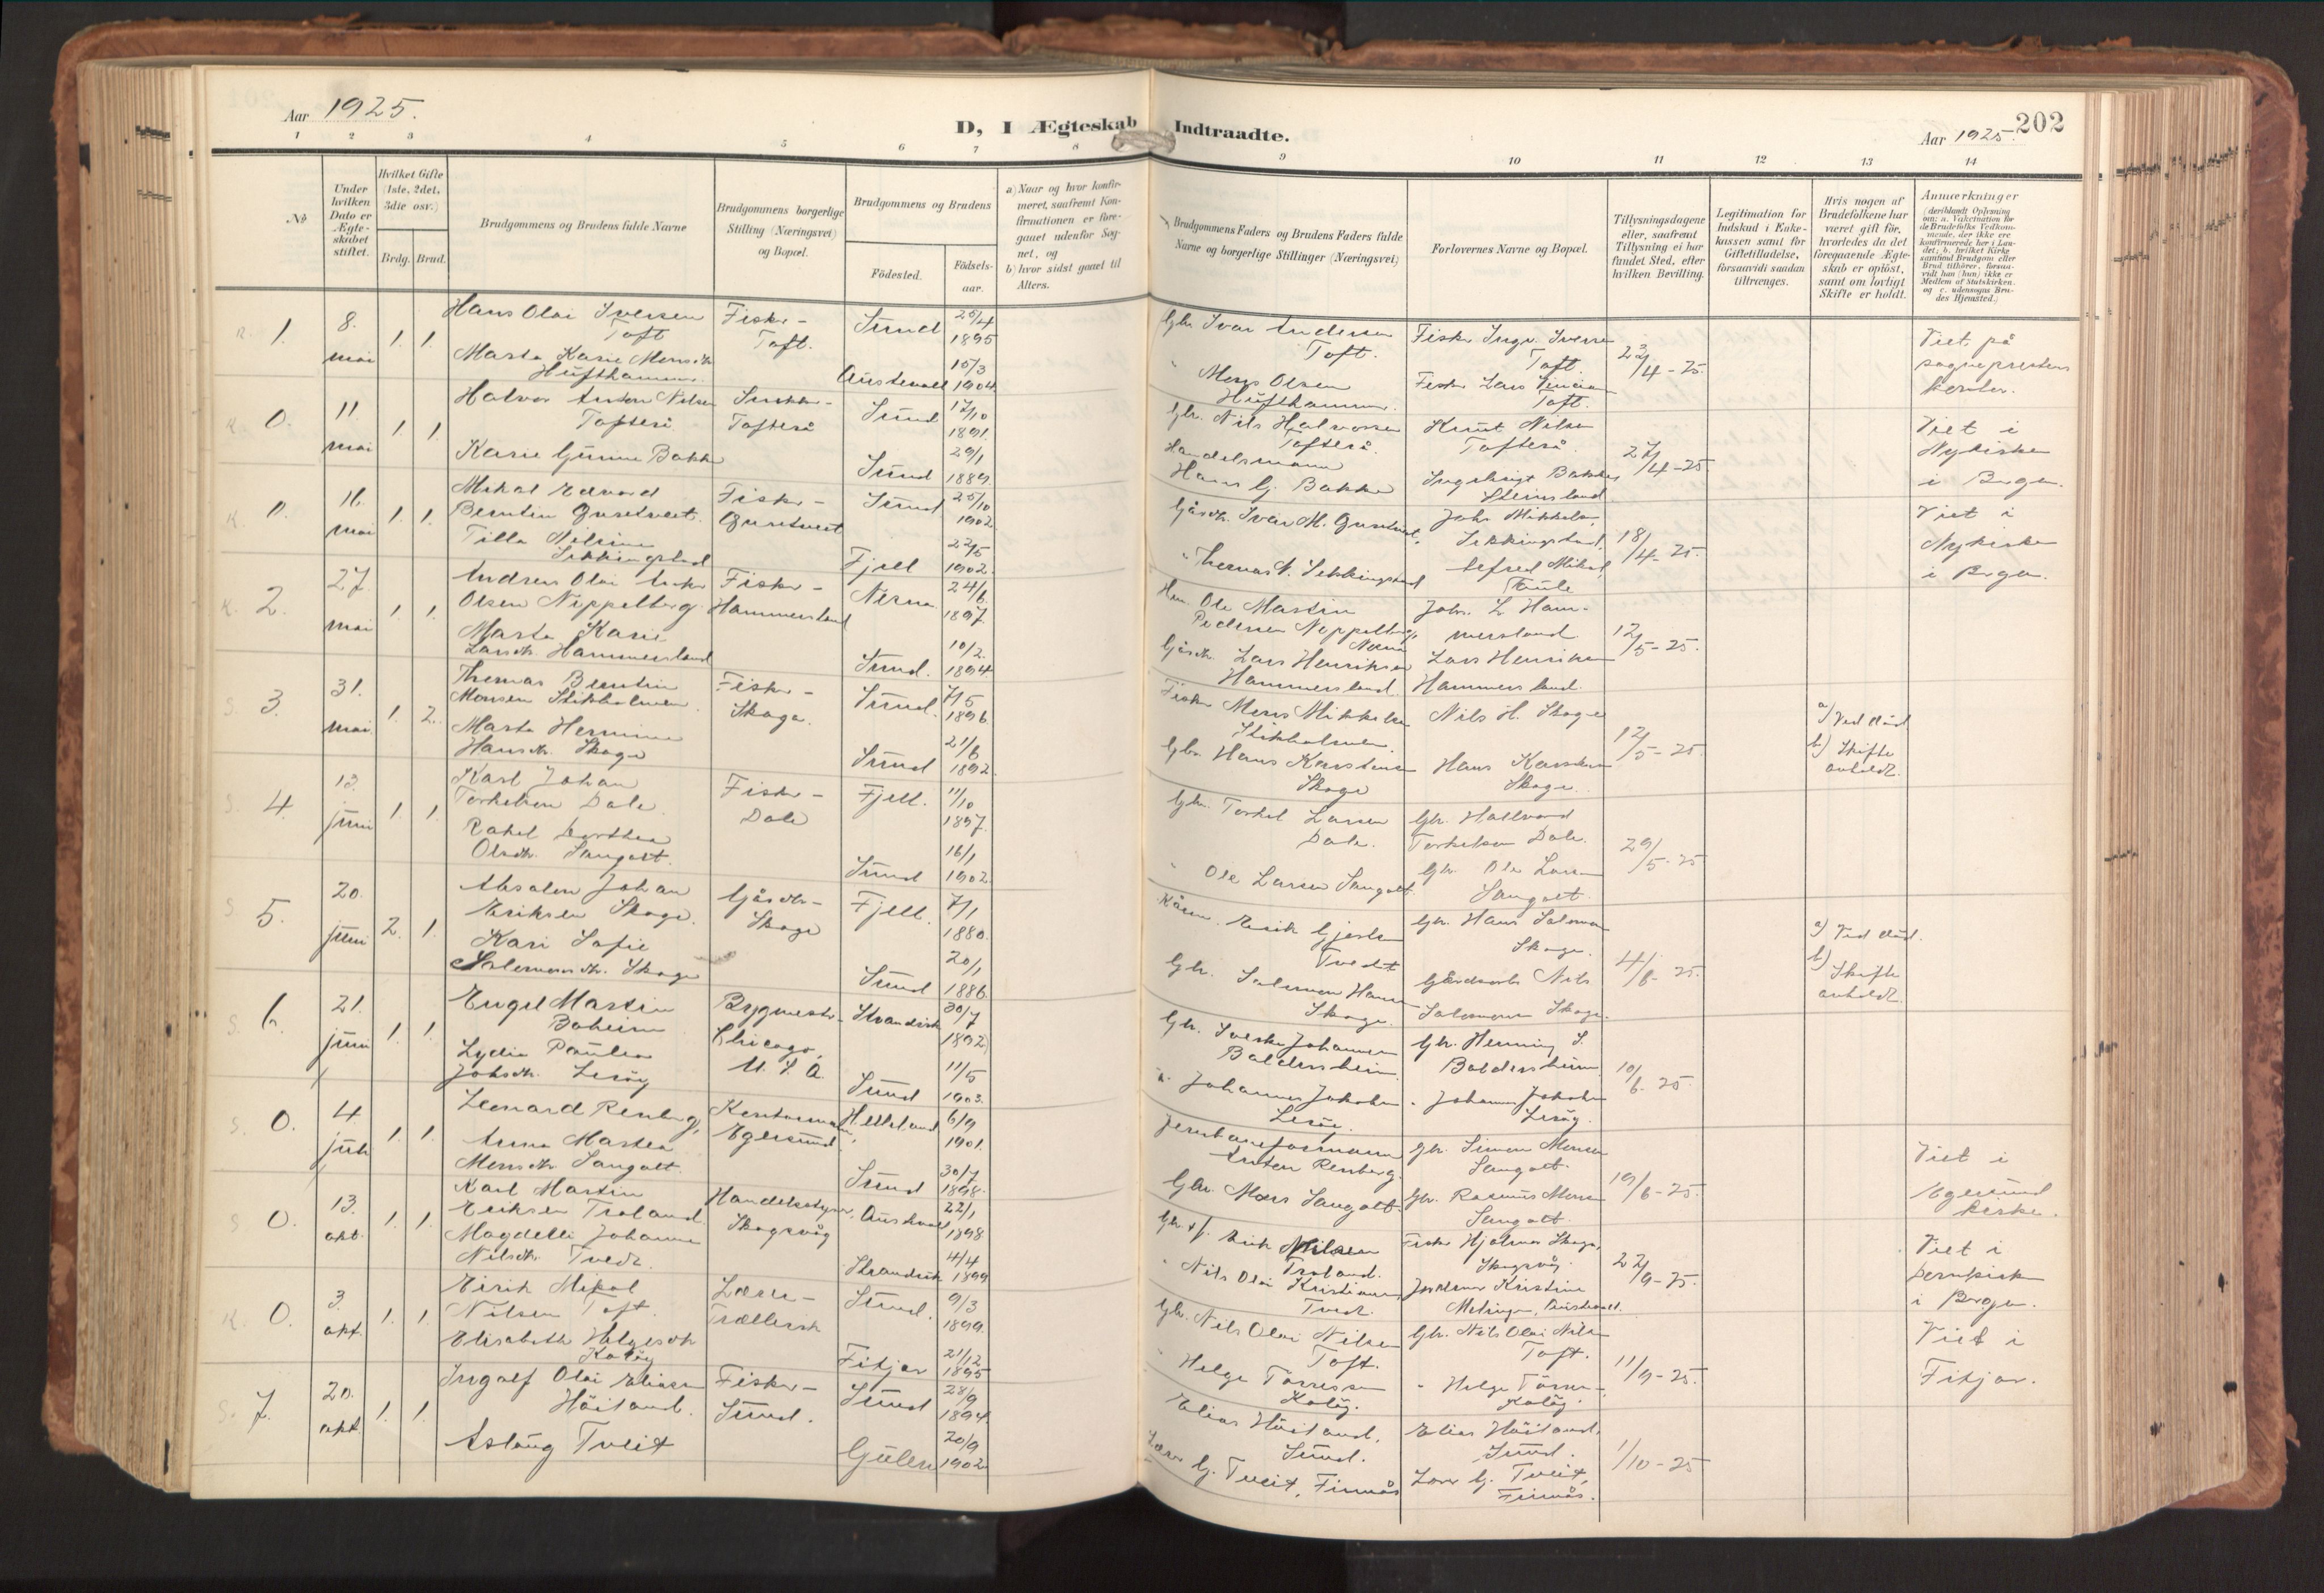 Aar 1925.
D, I Ægteskab Indtraadte.
202
Aar 1925.
1 2 3 4 5 6 7 8 9 10 11 12 13 14
No
Under hvilken Dato er Ægteskabet stiftet.
Hvilket Gifte (1ste, 2det, 3die osv.)
Brdg. Brud.
Brudgommens og Brudens fulde Navne
Brudgommens borgerlige Stilling (Næringsvei) og Bopæl.
Brudgommens og Brudens
Födested.
Födselsaar.
a) Naar og hvor konfirmeret, saafremt Konfirmationen er foregaaet udenfor Sognet, og
b) hvor sidst gaaet til Alters.
Brudgommens Faders og Brudens Faders fulde Navne og borgerlige Stillinger (Næringsvei)
Forlovernes Navne og Bopæl.
Tillysningsdagene eller, saafremt Tillysning ei har fundet Sted, efter hvilken Bevilling.
Legitimation for Indskud i Enkekassen samt for Giftetilladelse, forsaavidt saadan tiltrænges.
Hvis nogen af Brudefolkene har været gift för, hvorledes da det foregaaende Ægteskab er oplöst, samt om lovligt Skifte er holdt.
Anmærkninger
(deriblandt Oplysning om: a. Vakcination for de Brudefolks Vedkommende, der ikke ere konfirmerede her i Landet; b. hvilket Kirkesamfund Brudgom eller Brud tilhörer, forsaavidt han (hun) ikke er Medlem af Statskirken, og c. udensogns Brudes Hjemsted.)
1. 8. mai 1. 1.
Hans Olai Iversen Toft
Fisker - Toft.
Sund 25/4 1895
Marta Karie Monsdtr Hufthammer.
Austevoll 15/3 1904.
Gbr. Ivar Andersen Toft.
" Mons Olsen Hufthammer.
Fisker Ingv. Iversen Toft
Fisker Lars Toft.
23/4-25.
Viet på sogneprestens kontor.
0. 11. mai 1. 1.
Halvor Anton Nilsen Tofterå
Snekker - Tofterå
Sund 17/10 1891.
Karie Gurine Bakke
Sund 29/1 1889.
Gbr. Nils Halvorsen Tofterå.
Handelsmann Hans G. Bakke
Knut Nilsen Tofterå.
Ingebrigt Bakke, Steinsland
27/4-25
Viet i Nykirken i Bergen.
0. 16. mai 1. 1.
Mikal Edvard Berntin Gursetveit.
Fisker - Gursetveit
Sund 25/10 1902.
Tilla Nilsine Sekkingstad
Fjell 22/5 1902.
Gårdbr. Ivar M. Gursetveit,
" Thomas N. Sekkingstad
Johs Mikkelsen, Sekkingstad,
Alfred Mikal, Taule
18/4-25.
Viet i Nykirken i Bergen.
2. 27. mai 1. 1.
Andreas Olai Anker Olsen Nippelberg
Fisker - Hammersland
Nesna 24/6. 1897.
Marta Karie Larsdtr. Hammersland
Sund. 10/2. 1894.
Ole Martin Pedersen Nippelberg, Nesna
Gårdbr. Lars Henriksen Hammersland.
Johs. L. Hammersland
Lars Henriksen Hammersland.
12/5-25.
3. 31. mai 1. 2.
Thomas Berntin Monsen Stikholmen.
Fisker - Skoge.
Sund. 7/5 1896.
Marta Hermine Hansdtr. Skoge
Sund 21/6 1892.
Fisker Mons Mikkelsen Stikholmen.
Gbr. Hans Karstensen Skoge
Nils H. Skoge
Hans Karstensen Skoge.
12/5-25
a) Ved död.
b) Skifte avholdt.
4. 13. juni 1. 1.
Karl Johan Torkelsen Dale
Fisker - Dale
Fjell. 11/10 1897.
Rakel Dorthea Olsdtr. Sangolt.
Sund 16/1 1902.
Gbr. Torkel Larsen Dale.
" Ole Larsen Sangolt.
Gbr. Hallvard Torkelsen Dale.
Gbr. Ole Larsen Sangolt.
29/5-25
5. 20. juni 2. 1.
Absalon Johan Eriksen Skoge.
Gårdbr - Skoge
Fjell. 7/1 1880.
Kari Sofie Salomonsdtr. Skoge
Sund 20/1 1886.
Kårm. Erik Gjertsen Tvedt
Gbr. Salomon Hansen Skoge.
Gbr. Hans Salomonsen Skoge.
Gårdsarb. Nils Salomonsen Skoge.
4/6-25.
a) Ved död.
b) Skifte avholdt.
6. 21. juni 1. 1.
Engel Martin Boheim
Bygmester - Chicago, U. S. A.
Strandvik 30/7 1892
Lydia Paulea Johsdtr. Lerøy
Sund 11/5 1903.
Gbr. Sverke Johannesen Baldersheim.
" Johannes Jakobsen Lerøy.
Gbr. Henning S. Baldersheim
" Johannes Jakobsen Lerøy.
10/6-25.
0. 4. juli 1. 1.
Leonard Renberg,
Kontormann, Egersund.
Helleland 6/9 1901.
Anna Martea Monsdtr. Sangolt.
Sund 30/7 1898.
Jernbaneformann Anton Renberg.
Gbr. Mons Sangolt.
Gbr. Simon Monsen Sangolt.
Gbr. Rasmus Monsen Sangolt.
19/6-25.
Viet i Egersund kirke.
0. 13. okt. 1. 1.
Karl Martin Eriksen Troland.
Handelsstyrer, Skogsvåg
Austevoll 22/1 1898
Magdelli Johanna Nilsdtr. Tvedt.
Strandvik 4/4 1899
Gbr. & f. Erik Nilsen Troland.
" Nils Olai Kristiansen Tvedt.
Fisker Hjalmar Skoge, Skogsvåg.
Jordmor Kristine Melingen, Austevoll.
22/9-25.
Viet i Domkirken i Bergen.
0. 3. okt. 1. 1.
Eirik Mikal Nilsen Toft.
Lærer - Trællevik
Sund. 9/3 1899.
Elisabeth Helgesdtr Koløy
Fitjar 21/12 1895
Gbr. Nils Olai Nilsen Toft.
" Helge Tørresen Koløy.
Gbr. Nils Olai Nilsen Toft.
" Helge Tørresen Koløy.
11/9-25.
Viet i Fitjar.
7. 20. okt. 1. 1.
Ingolf Olai Eliasen Høiland.
Fisker - Sund.
Sund 28/9 1894.
Aslaug Tveit
Gulen 20/9 1902.
Elias Høiland, Sund.
Lærer G. Tveit, Finnås
Elias Høiland, Sund.
Lærer G. Tveit, Finnås.
1/10-25